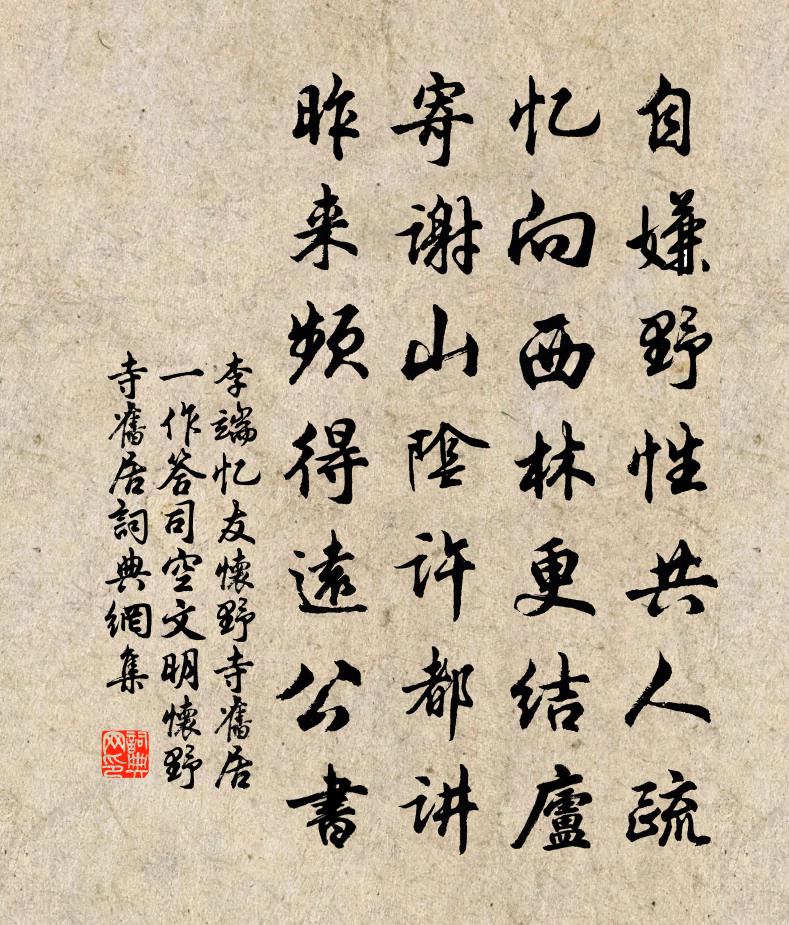 自嫌野性共人疏
忆向西林更结廬
寄谢山陰许都讲
昨来频得遠公書
李端忆友懷野寺舊居
一作答司空文明懷野
寺舊居詞典網集
詞典
网印